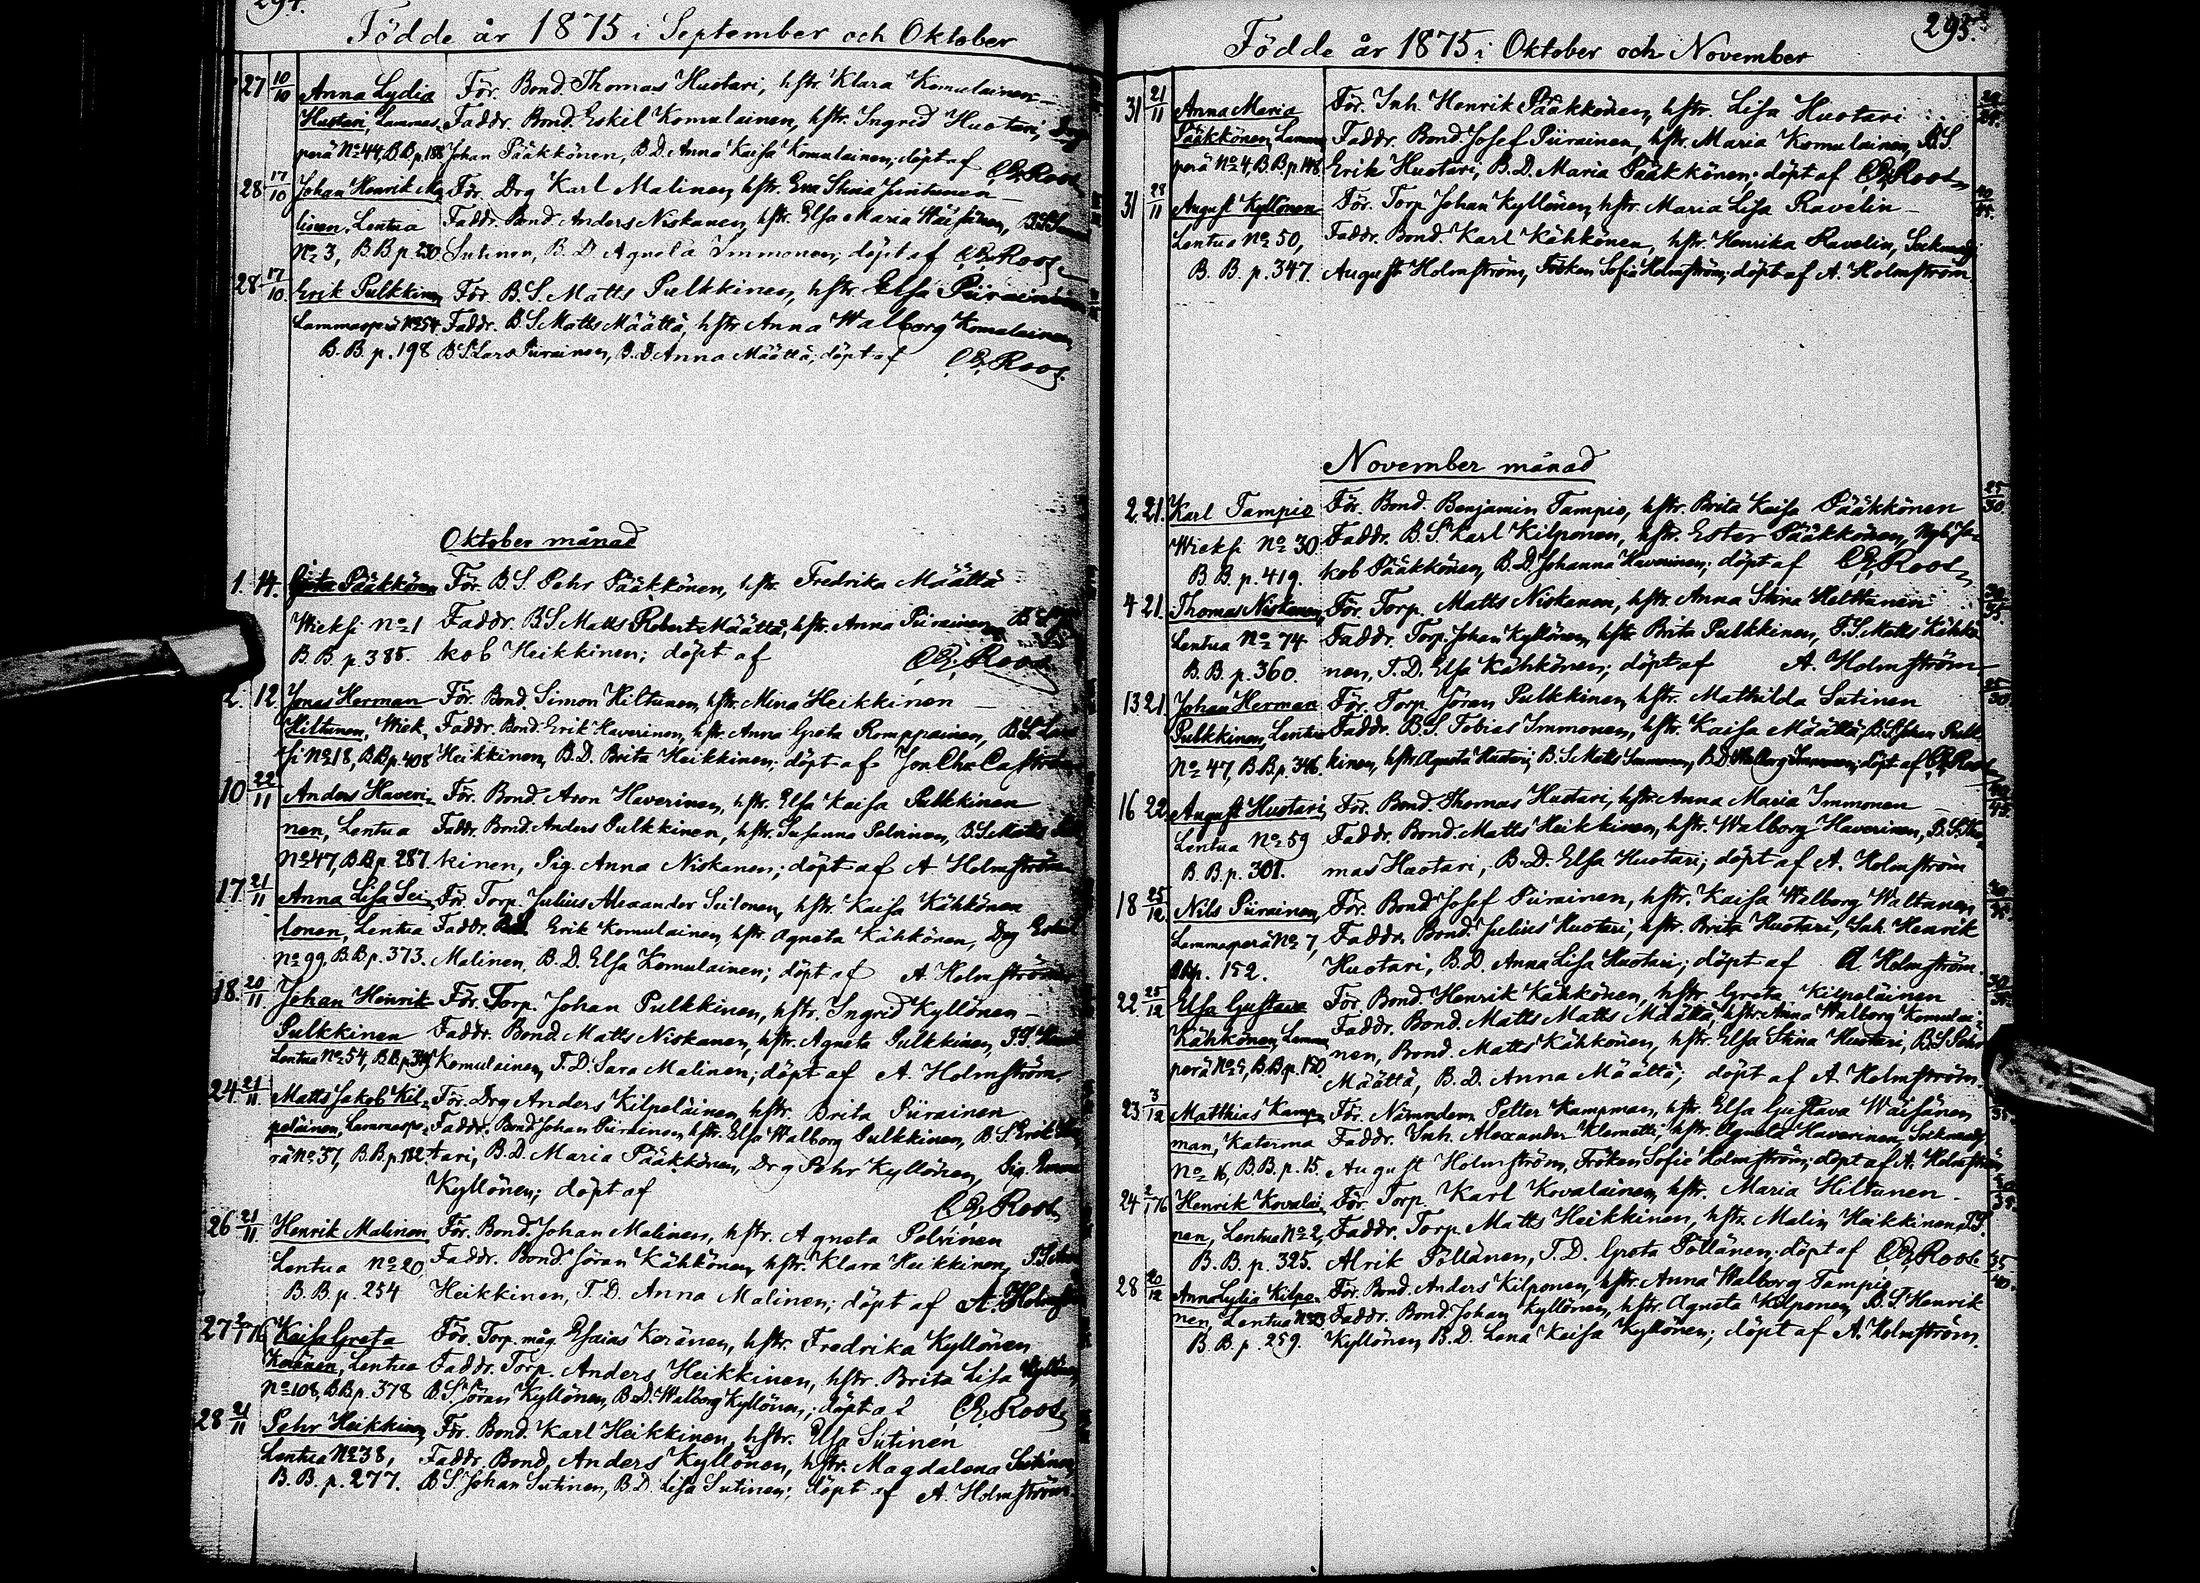 294.
Födde år 1875 i September och Oktober
27 10/10 Anna Lydia För. Bond. Thomas Huotari, hstr. Klara Komulainen
Huotari, Lammas- Faddr. Bond. Eskil Komulainen, hstr. Ingrid Huotari, Drg
perä No 44, B.B.p. 188 Johan Pääkkönen, B.D. Anna Kaisa Komulainen; döpt af C.E. Roos
28 17/10 Johan Henrik Ma- För. Drg Karl Malinen, hstr. Eva Stina Juntunen
linen, Lentua Faddr. Bond. Anders Niskanen, hstr. Elsa Maria Wäisänen, B.S.
No 3, B.B.p. 230 Sutinen, B.D. Agneta Immonen; döpt af C.E. Roos
28 17/10 Erik Pulkkinen För. B.S. Matts Pulkkinen, hstr. Elsa Piirainen
Lammasperä No 54 Faddr. B.S. Matts Määttä, hstr Anna Walborg Komulainen,
B.B. p. 198 B.S. Lars Piirainen, B.D. Anna Määttä; döpt af C.E. Roos.
Oktober månad
1. 14. Greta Pääkkönen För. B.S. Pehr Pääkkönen, hstr. Fredrika Määttä
Wieksi No 1 Faddr. B.S. Matts Robert Määttä, hstr. Anna Piirainen, B.S.
B.B. p. 385. kob Heikkinen; döpt af C.E. Roos
2. 12. Jonas Herman För. Bond. Simon Hiltunen, hstr. Mina Heikkinen
Hiltunen, Wiek- Faddr. Bond. Erik Haverinen, hstr. Anna Greta Romppainen, B.S. Lars
si No 18, B.B.p. 408 Heikkinen, B.D. Brita Heikkinen; döpt af Jon. Chr. Castrén
10 22/11 Anders Haveri- För. Bond. Aron Haverinen, hstr. Elsa Kaisa Pulkkinen
nen, Lentua Faddr. Bond. Anders Pulkkinen, hstr. Susanna Polvinen, B.S. Matts
No 47, B.B.p. 287. kinen, Pig. Anna Niskanen; döpt af A Holmström
17 21/11 Anna Lisa Sei- För Torp. Julius Alexander Seilonen, hstr. Kaisa Kähkönen
lonen, Lentua Faddr. B.S. Erik Komulainen, hstr. Agneta Kähkönen, Drg Eskil
No 99, B.B.p. 373. Malinen, B.D. Elsa Komulainen; döpt af A. Holmström
18. 20/11 Johan Henrik För. Torp. Johan Pulkkinen, hstr. Ingrid Kyllönen
Pulkkinen Faddr. Bond. Matts Niskanen, hstr. Agneta Pulkkinen, T.S. Henrik
Lentua No 54, B.B.p. Komulainen, T.D. Sara Malinen; döpt af A. Holmström.
24 21/11 Matts Jakob Kil- För. Drg Anders Kilpeläinen, hstr. Brita Piirainen
peläinen, Lammaspe- Faddr. Bond Johan Piirainen, hstr. Elsa Walborg Pulkkinen, B.S. Erik
rä No 37, B.B.p. 182. tari, B.D. Maria Pääkkönen, Drg Pehr Kyllönen, Pig.
Kyllönen; döpt af C.E. Roos
26 21/11 Henrik Malinen För. Bond. Johan Malinen, hstr. Agneta Polvinen
Lentua No 20 Faddr. Bond. Jöran Kähkönen, hstr. Klara Heikkinen, T.S. Johan
B.B. p. 254 Heikkinen, T.D. Anna Malinen; döpt af A. Holmström
27 2/1 76 Kaisa Greta För. Torp. måg Esaias Keränen, hstr. Fredrika Kyllönen
Keränen, Lentua Faddr. Torp. Anders Heikkinen, hstr. Brita Lisa Kyllönen
No 108, B.B.p. 378 B.S. Jöran Kyllönen, B.D. Walborg Kyllönen; döpt af C.E. Roos
28 21/11 Pehr Heikkinen För. Bond. Karl Heikkinen, hstr. Elsa Sutinen
Lentua No 38, Faddr. Bond. Anders Kyllönen, hstr. Magdalena Sutinen
B.B. p. 277. B.S. Johan Sutinen, B.D. Lisa Sutinen; döpt af A. Holmström
295.
Födde år 1875 i Oktober och November
31 21/11 Anna Maria För. Inh. Henrik Pääkkönen, hstr. Lisa Huotari
Pääkkönen, Lammas- Faddr. Bond Josef Piirainen, hstr. Maria Komulainen, B.S.
perä No 4, B.B.p. 148. Erik Huotari, B.D. Maria Pääkkönen; döpt af C.E. Roos
31 28/11 August Kyllönen För. Torp. Johan Kyllönen, hstr. Maria Lisa Ravelin 40/45.
Lentua No 50, Faddr. Bond. Karl Kähkönen, hstr. Henrika Ravelin, Socknadj.
B.B. p. 347. August Holmström, Fröken Sofie Holmström; döpt af A. Holmström.
November månad
2. 21. Karl Tampio För. Bond. Benjamin Tampio, hstr. Brita Kaisa Pääkkönen 25/30.
Wieksi No 30 Faddr. B.S. Karl Kilponen, hstr. Ester Pääkkönen, Nyb. Ja-
B.B. p. 419. kob Pääkkönen, B.D. Johanna Haverinen; döpt af C.E. Roos
4 21. Thomas Niskanen, För. Torp. Matts Niskanen, hstr. Anna Stina Helttunen 30/35.
Lentua No 74 Faddr. Torp. Johan Kyllönen, hstr Brita Pulkkinen, T.S. Matts Kähkö-
B.B. p. 360. nen, T.D. Elsa Kähkönen; döpt af A. Holmström
13 21 Johan Herman För. Torp. Jöran Pulkkinen, hstr. Mathilda Sutinen 25/30
Pulkkinen, Lentua Faddr. B.S. Tobias Immonen, hstr. Kaisa Määttä, B.S. Johan Pulk-
No 47, B.B.p. 346. kinen, hstr. Agneta Huotari, B.S. Matts Immonen, B.D. Walborg Immonen; döpt af C.E. Roos
16 22. August Huotari För. Bond. Thomas Huotari, hstr. Anna Maria Immonen 40/45.
Lentua No 59 Faddr. Bond. Matts Heikkinen, hstr. Walborg Haverinen, B.S. Tho-
B.B. p. 301. mas Huotari, B.D. Elsa Huotari; döpt af A. Holmström
18 25/12. Nils Piirainen, För. Bond Josef Piirainen, hstr. Kaisa Walborg Waltanen
Lammasperä No 7, Faddr. Bond. Julius Huotari, hstr. Brita Huotari, Inh. Henrik
B.B.p. 152. Huotari, B.D. Anna Lisa Huotari; döpt af A. Holmström.
22 25/12 Elsa Gustava För. Bond. Henrik Kähkönen, hstr. Greta Kilpeläinen 30/35.
Kähkönen, Lammas- Faddr. Bond. Matts Matts Määttä, hstr Anna Walborg Komulai-
perä No 5, B.B.p. 150. nen, Bond. Matts Kähkönen, hstr. Elsa Stina Huotari, B.S. Pehr
Määttä, B.D. Anna Määttä; döpt af A. Holmström.
23. 3/12 Matthias Kamp- För. Nämndem. Petter Kampman, hstr. Elsa Gustava Wäisänen
man, Katerma Faddr. Inh. Alexander Klemetti, hstr. Agneta Haverinen, Socknadj.
No 16, B.B. p. 15. August Holmström, Fröken Sofie Holmström; döpt af A. Holmström
24 2/1 76 Henrik Kovalai- För. Torp. Karl Kovalainen, hstr. Maria Hiltunen
nen, Lentua No 2, Faddr. Torp. Matts Heikkinen, hstr. Malin Heikkinen, T.S.
B.B. p. 325. Alrik Pöllänen, T.D. Greta Pöllänen; döpt af C.E. Roos.
28 20/12 Anna Lydia Kilpo- För. Bond. Anders Kilponen, hstr. Anna Walborg Tampio 35/40.
nen, Lentua No 23 Faddr. Bond. Johan Kyllönen, hstr. Agneta Kilponen, B.S. Henrik
B.B. p. 259. Kyllönen, B.D. Lena Kaisa Kyllönen; döpt af A. Holmström.